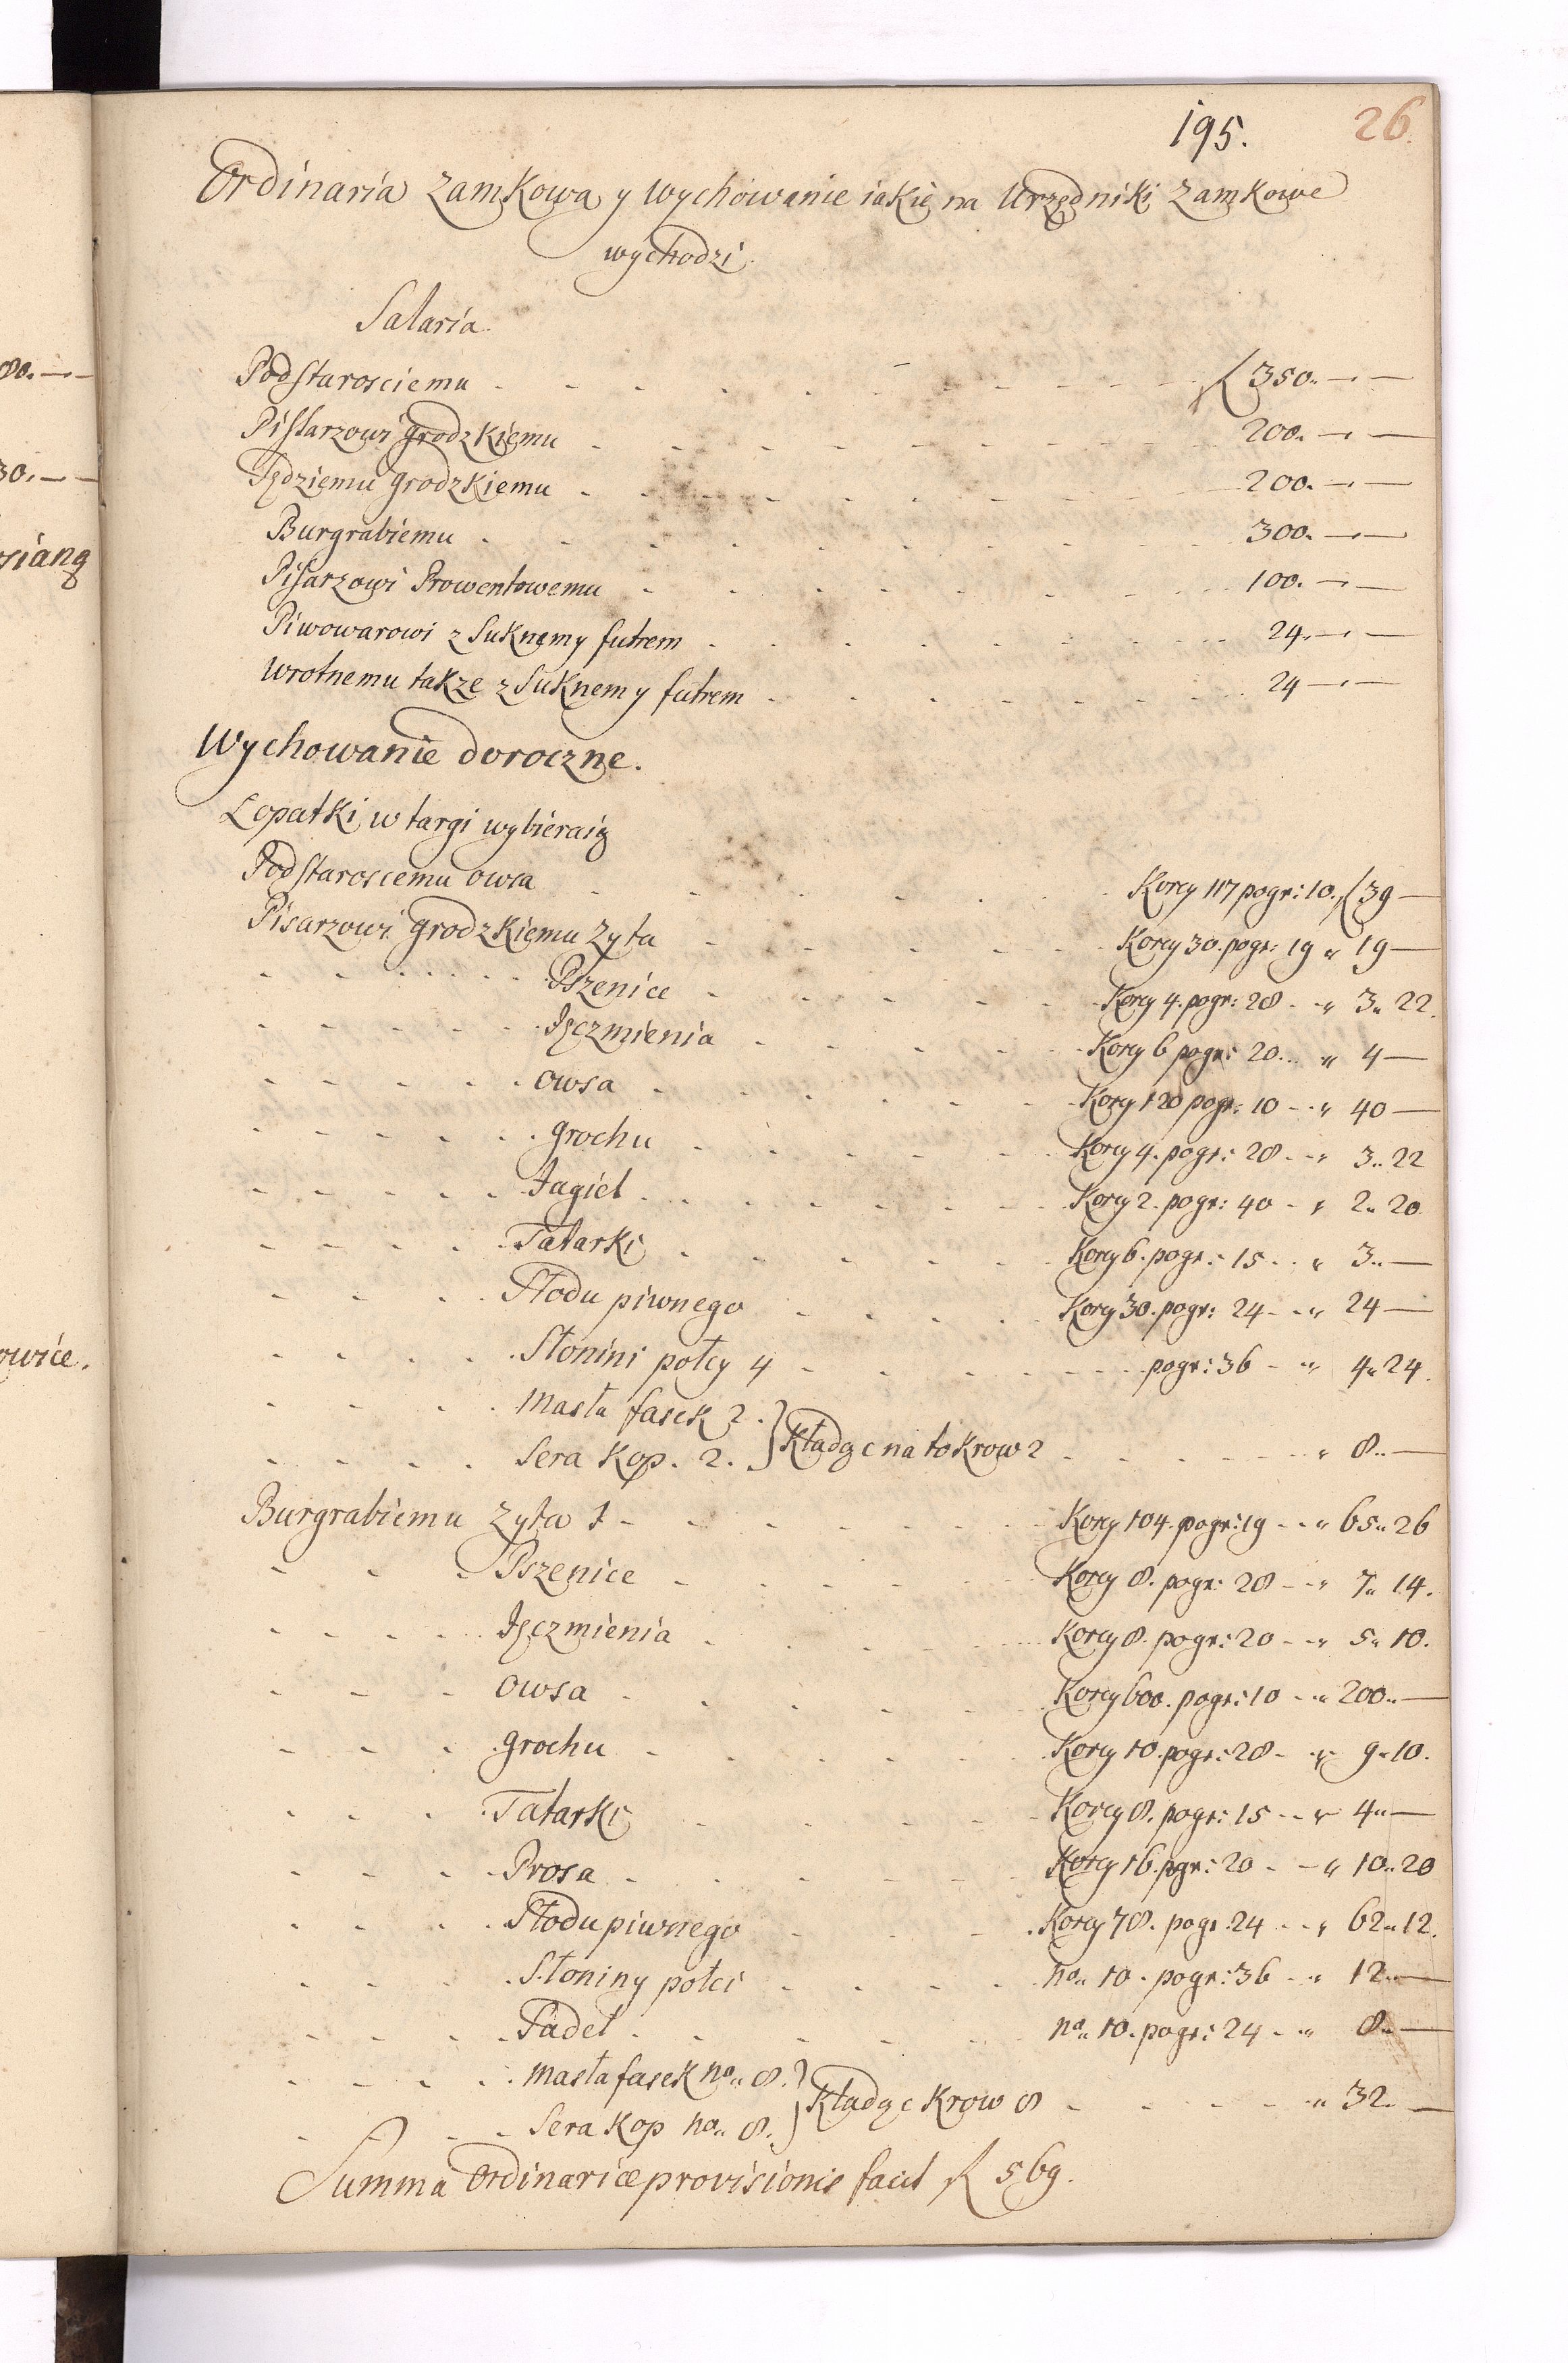 195. 26.
Ordinaria Zamkowa y wychowanie iakie na Urzędniki Zamkowe
wychodzi.
Salaria.
Podstarosciemu - - - - - - - - ƒ 350. — —
Pissarzowi grodzkiemu - - - - - - - - 200. — —
Sędziemu grodzkiemu - - - - - - - - 200. — —
Burgrabiemu - - - - - - - - 300. — —
Pisarzowi Prowentowemu - - - - - - - 100. — —
Piwowarowi z Suknem y futrem - - - - - - - 24. — —
Wrotnemu takze z Suknem y futrem - - - - - - 24 — —
Wychowanie doroczne.
Łopatki w targi wybieraią
Podstaroscemu owsa - - - - - Korcy 117 po gr: 10. ƒ 39 —
Pisarzowi grodzkiemu Zyta - - - - - Korcy 30. po gr: 19 „ 19 —
- - - - Pszenice - - - - - Korcy 4. po gr: 28 - „ 3„ 22.
- - - - Jęczmienia - - - - - Korcy 6 po gr: 20. „ 4 —
- - - - owsa - - - - - Korcy 120 po gr: 10 - „ 40 —
- - - - grochu - - - - - Korcy 4. po gr: 28 - „ 3„ 22
- - - - Jagieł - - - - - Korcy 2. po gr: 40 - „ 2„ 20
- - - - Tatarki - - - - - Korcy 6. po gr: 15 - „ 3„ —
- - - - Słodu piwnego - - - - - Korcy 30. po gr: 24 - „ 24 —
- - - - Słonini połcy 4 - - - - - po gr: 36 - „ 4„ 24.
- - - - Masła fasek 2. } Kładąc na to krow 2
- - - - Sera kop. 2. - - - - - „ 8„ —
Burgrabiemu Zyta - - - - - Korcy 104. po gr: 19 - „ 65„ 26
- - - Pszenice - - - - - Korcy 8. po gr: 28 - „ 7„ 14.
- - - Jęczmienia - - - - - Korcy 8. po gr: 20 - „ 5„ 10.
- - - owsa - - - - - Korcy 600. po gr: 10 - „ 200„ —
- - - grochu - - - - - Korcy 10. po gr: 28 - „ 9„ 10.
- - - Tatarki - - - - - Korcy 8. po gr: 15 - „ 4„ —
- - - Prosa - - - - - Korcy 16. po gr: 20 - „ 10„ 20
- - - Słodu piwnego - - - - Korcy 78. po gr: 24 - „ 62„ 12.
- - - Słoniny połci - - - - no„ 10. po gr: 36 - „ 12„ —
- - - Sadeł - - - - no„ 10. po gr: 24 - „ 8„ —
- - - Masła fasek no„ 8. } Kładąc Krow 8 - - - - „ 32„ —
- - - Sera kop no„ 8.
Summa Ordinariæ provisionis facit ƒ 569.